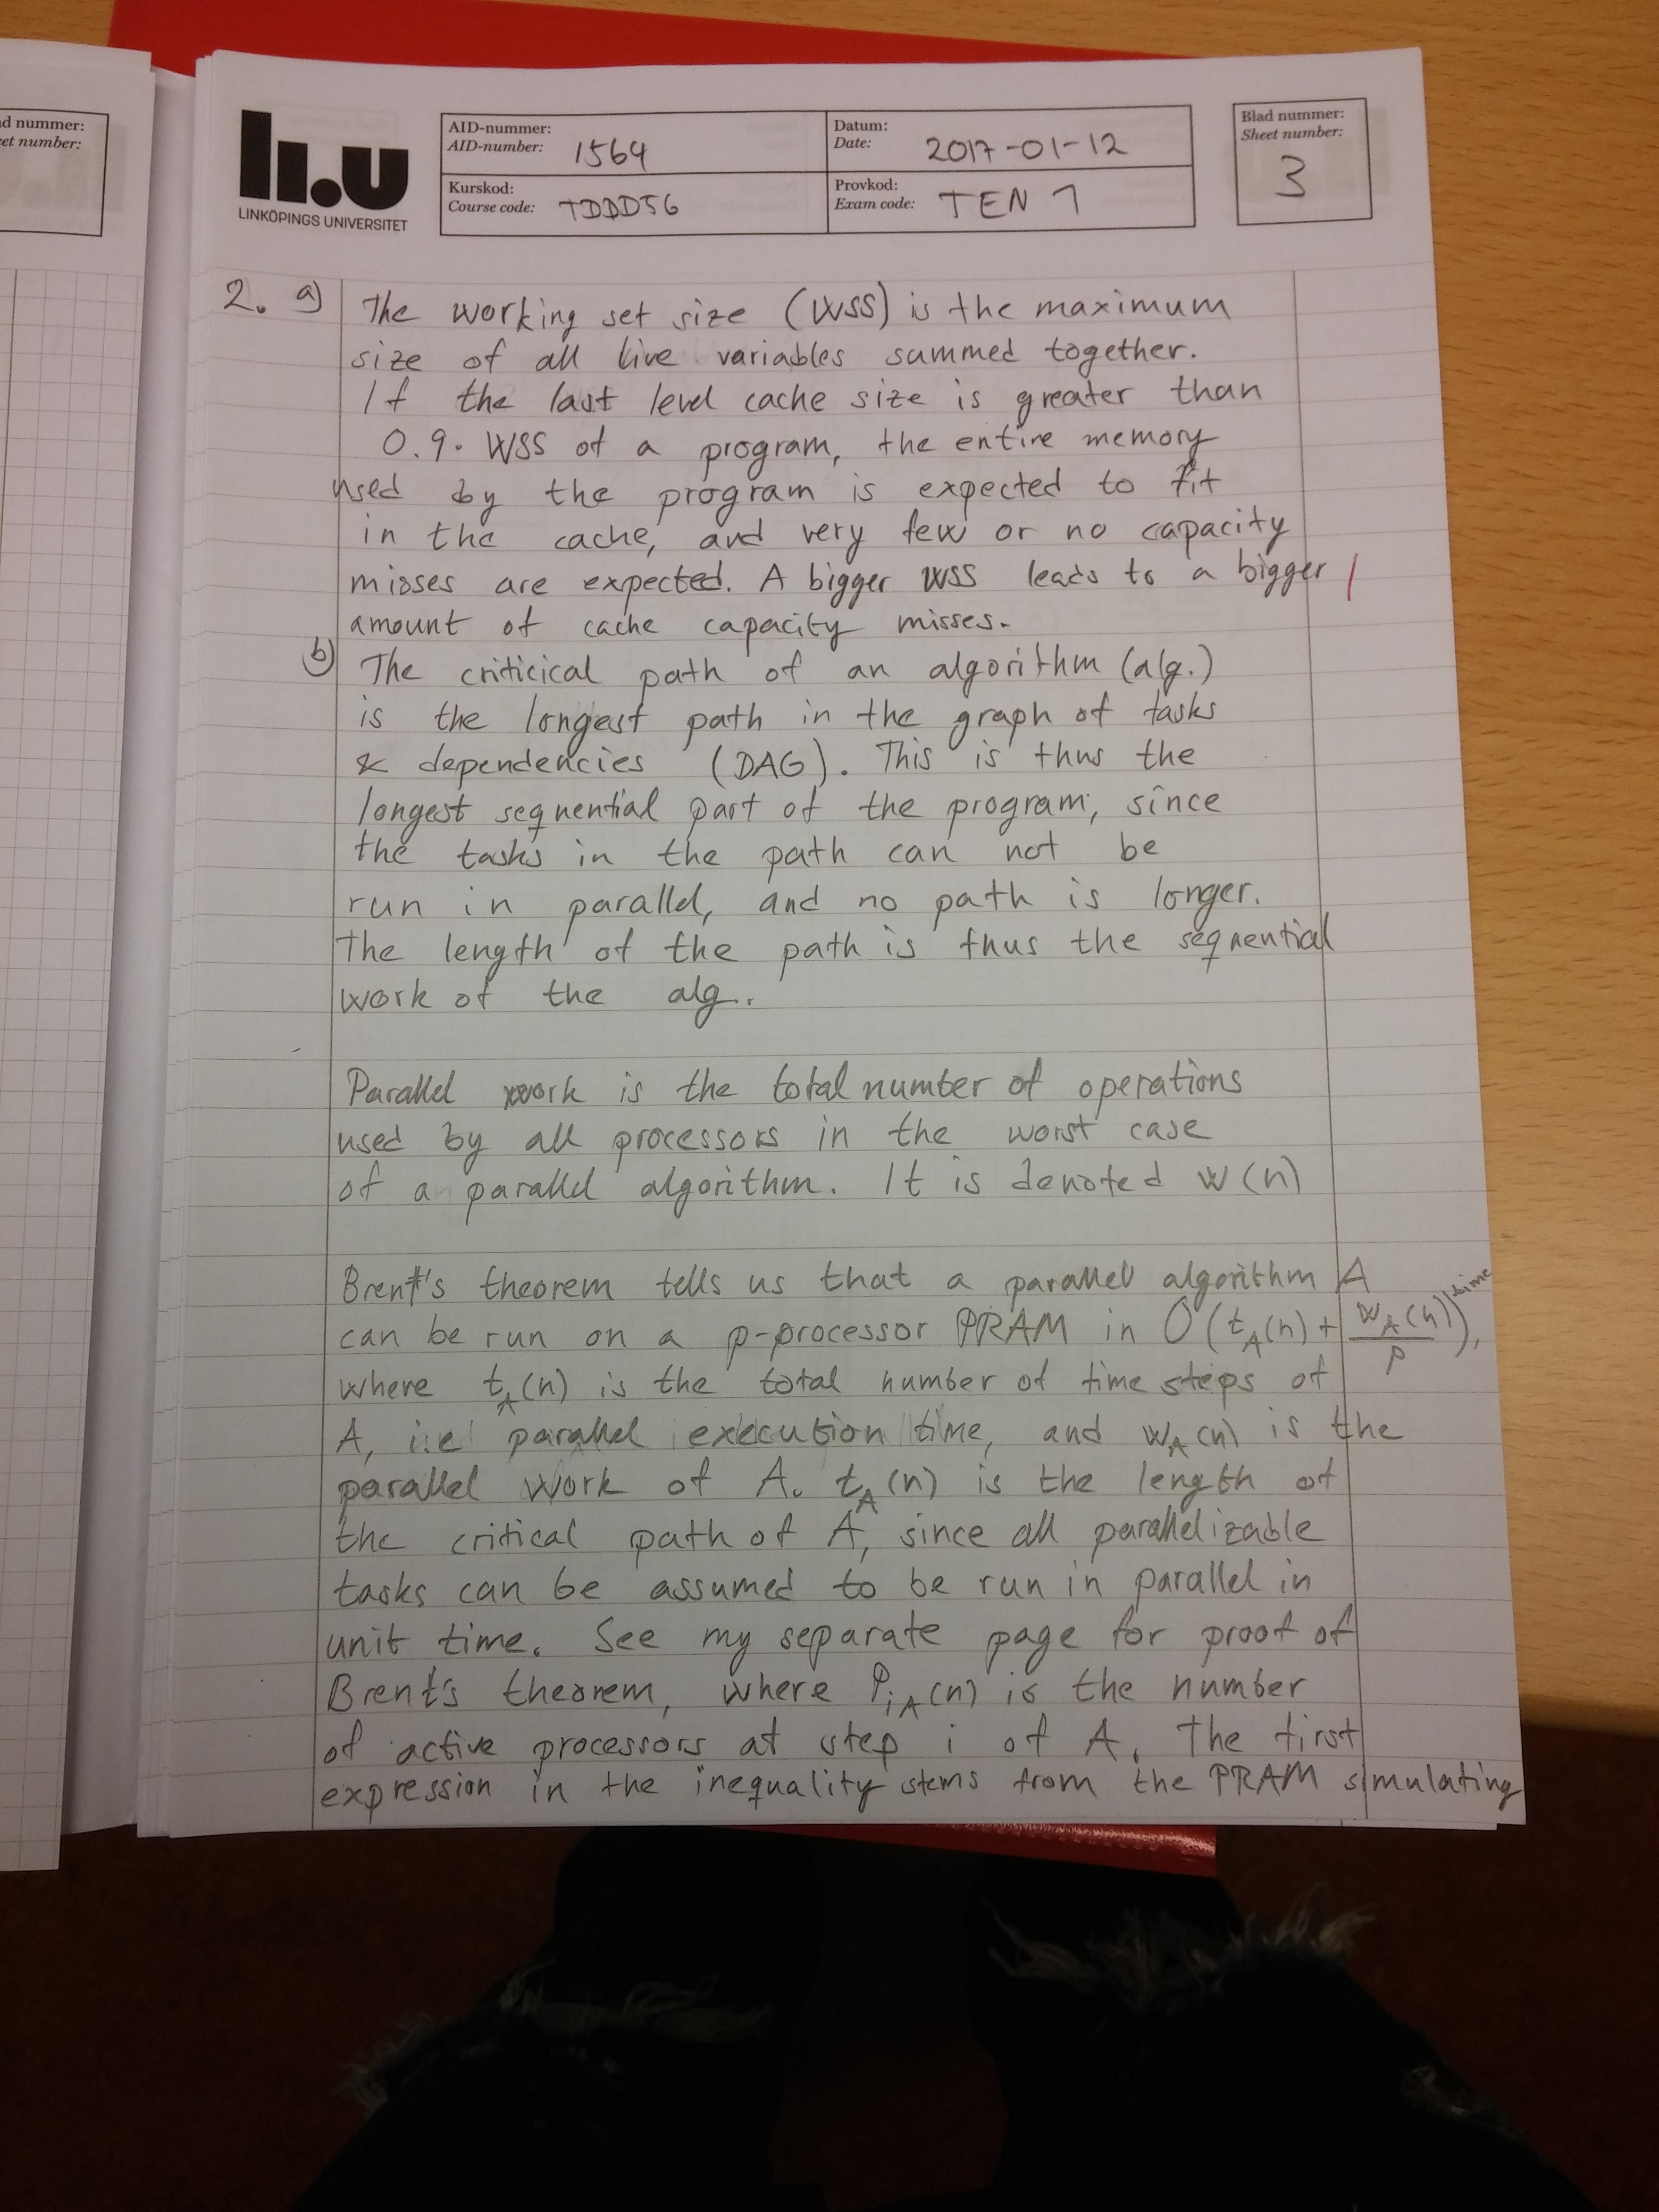 d nummer:
et number:
li.u
LINKÖPINGS UNIVERSITET
AID-nummer:
AID-number: 1564
Datum:
Date: 2017-01-12
Kurskod:
Course code: TDDD56
Provkod:
Exam code: TEN 1
Blad nummer:
Sheet number:
3
2. a) The working set size (WSS) is the maximum
size of all live variables summed together.
If the last level cache size is greater than
0.9 · WSS of a program, the entire memory
used by the program is expected to fit
in the cache, and very few or no capacity
misses are expected. A bigger WSS leads to a bigger /
amount of cache capacity misses.
b) The criticical path of an algorithm (alg.)
is the longest path in the graph of tasks
& dependencies (DAG). This is thus the
longest sequential part of the program, since
the tasks in the path can not be
run in parallel, and no path is longer.
The length of the path is thus the sequential
work of the alg..
Parallel work is the total number of operations
used by all processors in the worst case
of a parallel algorithm. It is denoted w(n)
Brent's theorem tells us that a parallel algorithm A
can be run on a p-processor PRAM in O(t_A(n) + w_A(n)/p) time,
where t_A(n) is the total number of time steps of
A, i.e parallel execution time, and w_A(n) is the
parallel work of A. t_A(n) is the length of
the critical path of A, since all parallelizable
tasks can be assumed to be run in parallel in
unit time. See my separate page for proof of
Brent's theorem, where P_iA(n) is the number
of active processors at step i of A. The first
expression in the inequality stems from the PRAM simulating